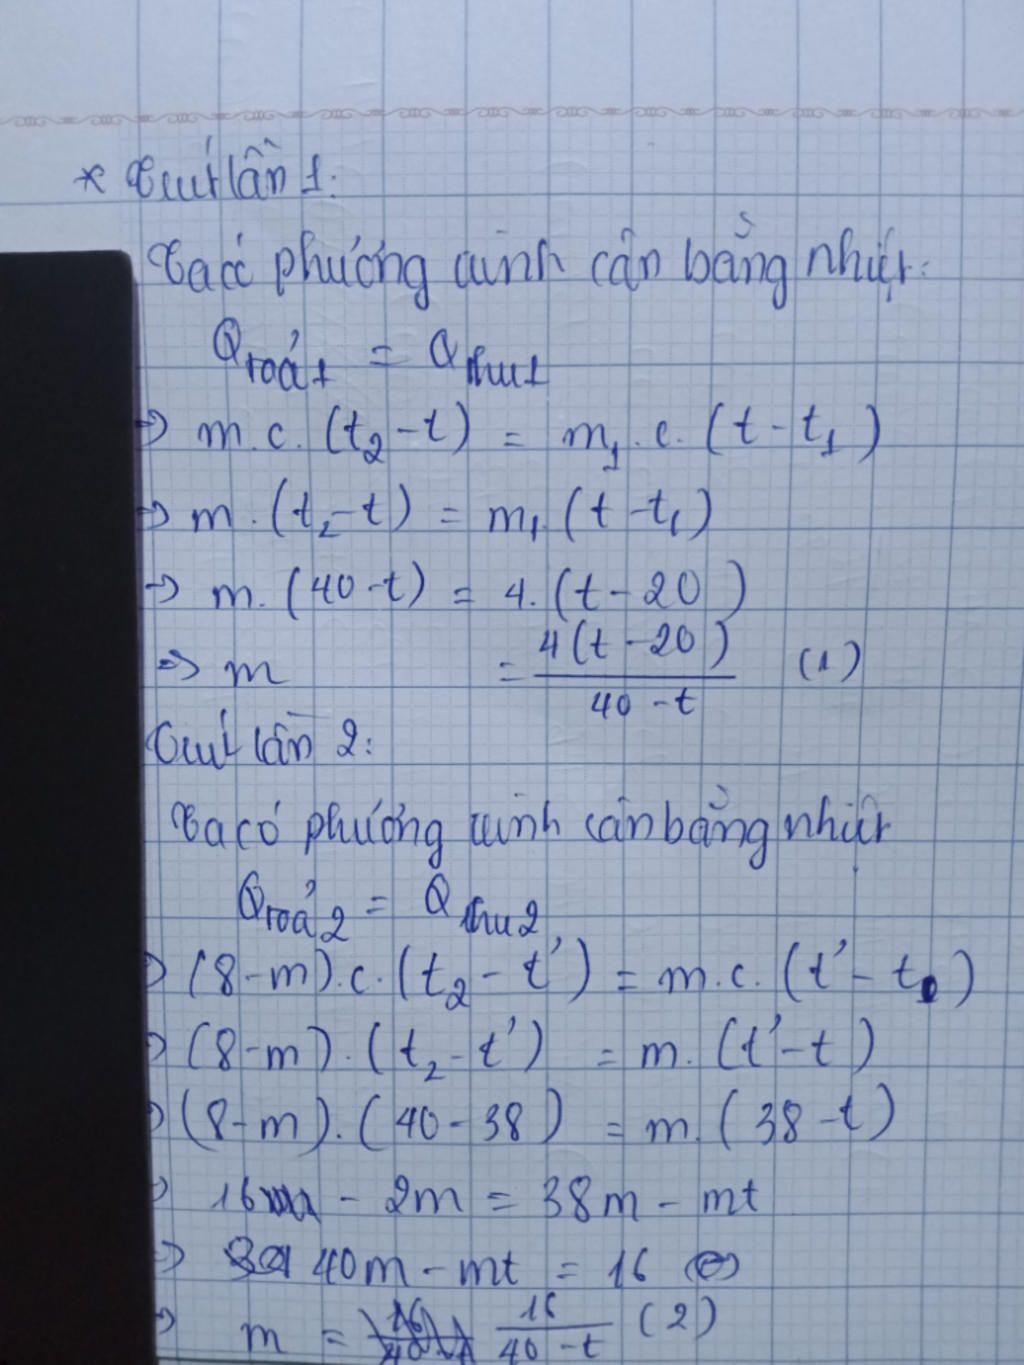 * Trút lần 1:
Ta có phương trình cân bằng nhiệt:
Qtoả1 = Qthu1
=> m.c.(t₂-t) = m₁.c.(t-t₁)
=> m.(t₂-t) = m₁.(t-t₁)
=> m.(40-t) = 4.(t-20)
=> m = \frac{4(t-20)}{40-t} (1)
Trút lần 2:
Ta có phương trình cân bằng nhiệt
Qtoả2 = Qthu2
=> (8-m).c.(t₂-t') = m.c.(t'-t)
=> (8-m).(t₂-t') = m.(t'-t)
=> (8-m).(40-38) = m.(38-t)
=> 16 - 2m = 38m - mt
=> 40m - mt = 16
=> m = \frac{16}{40-t} (2)